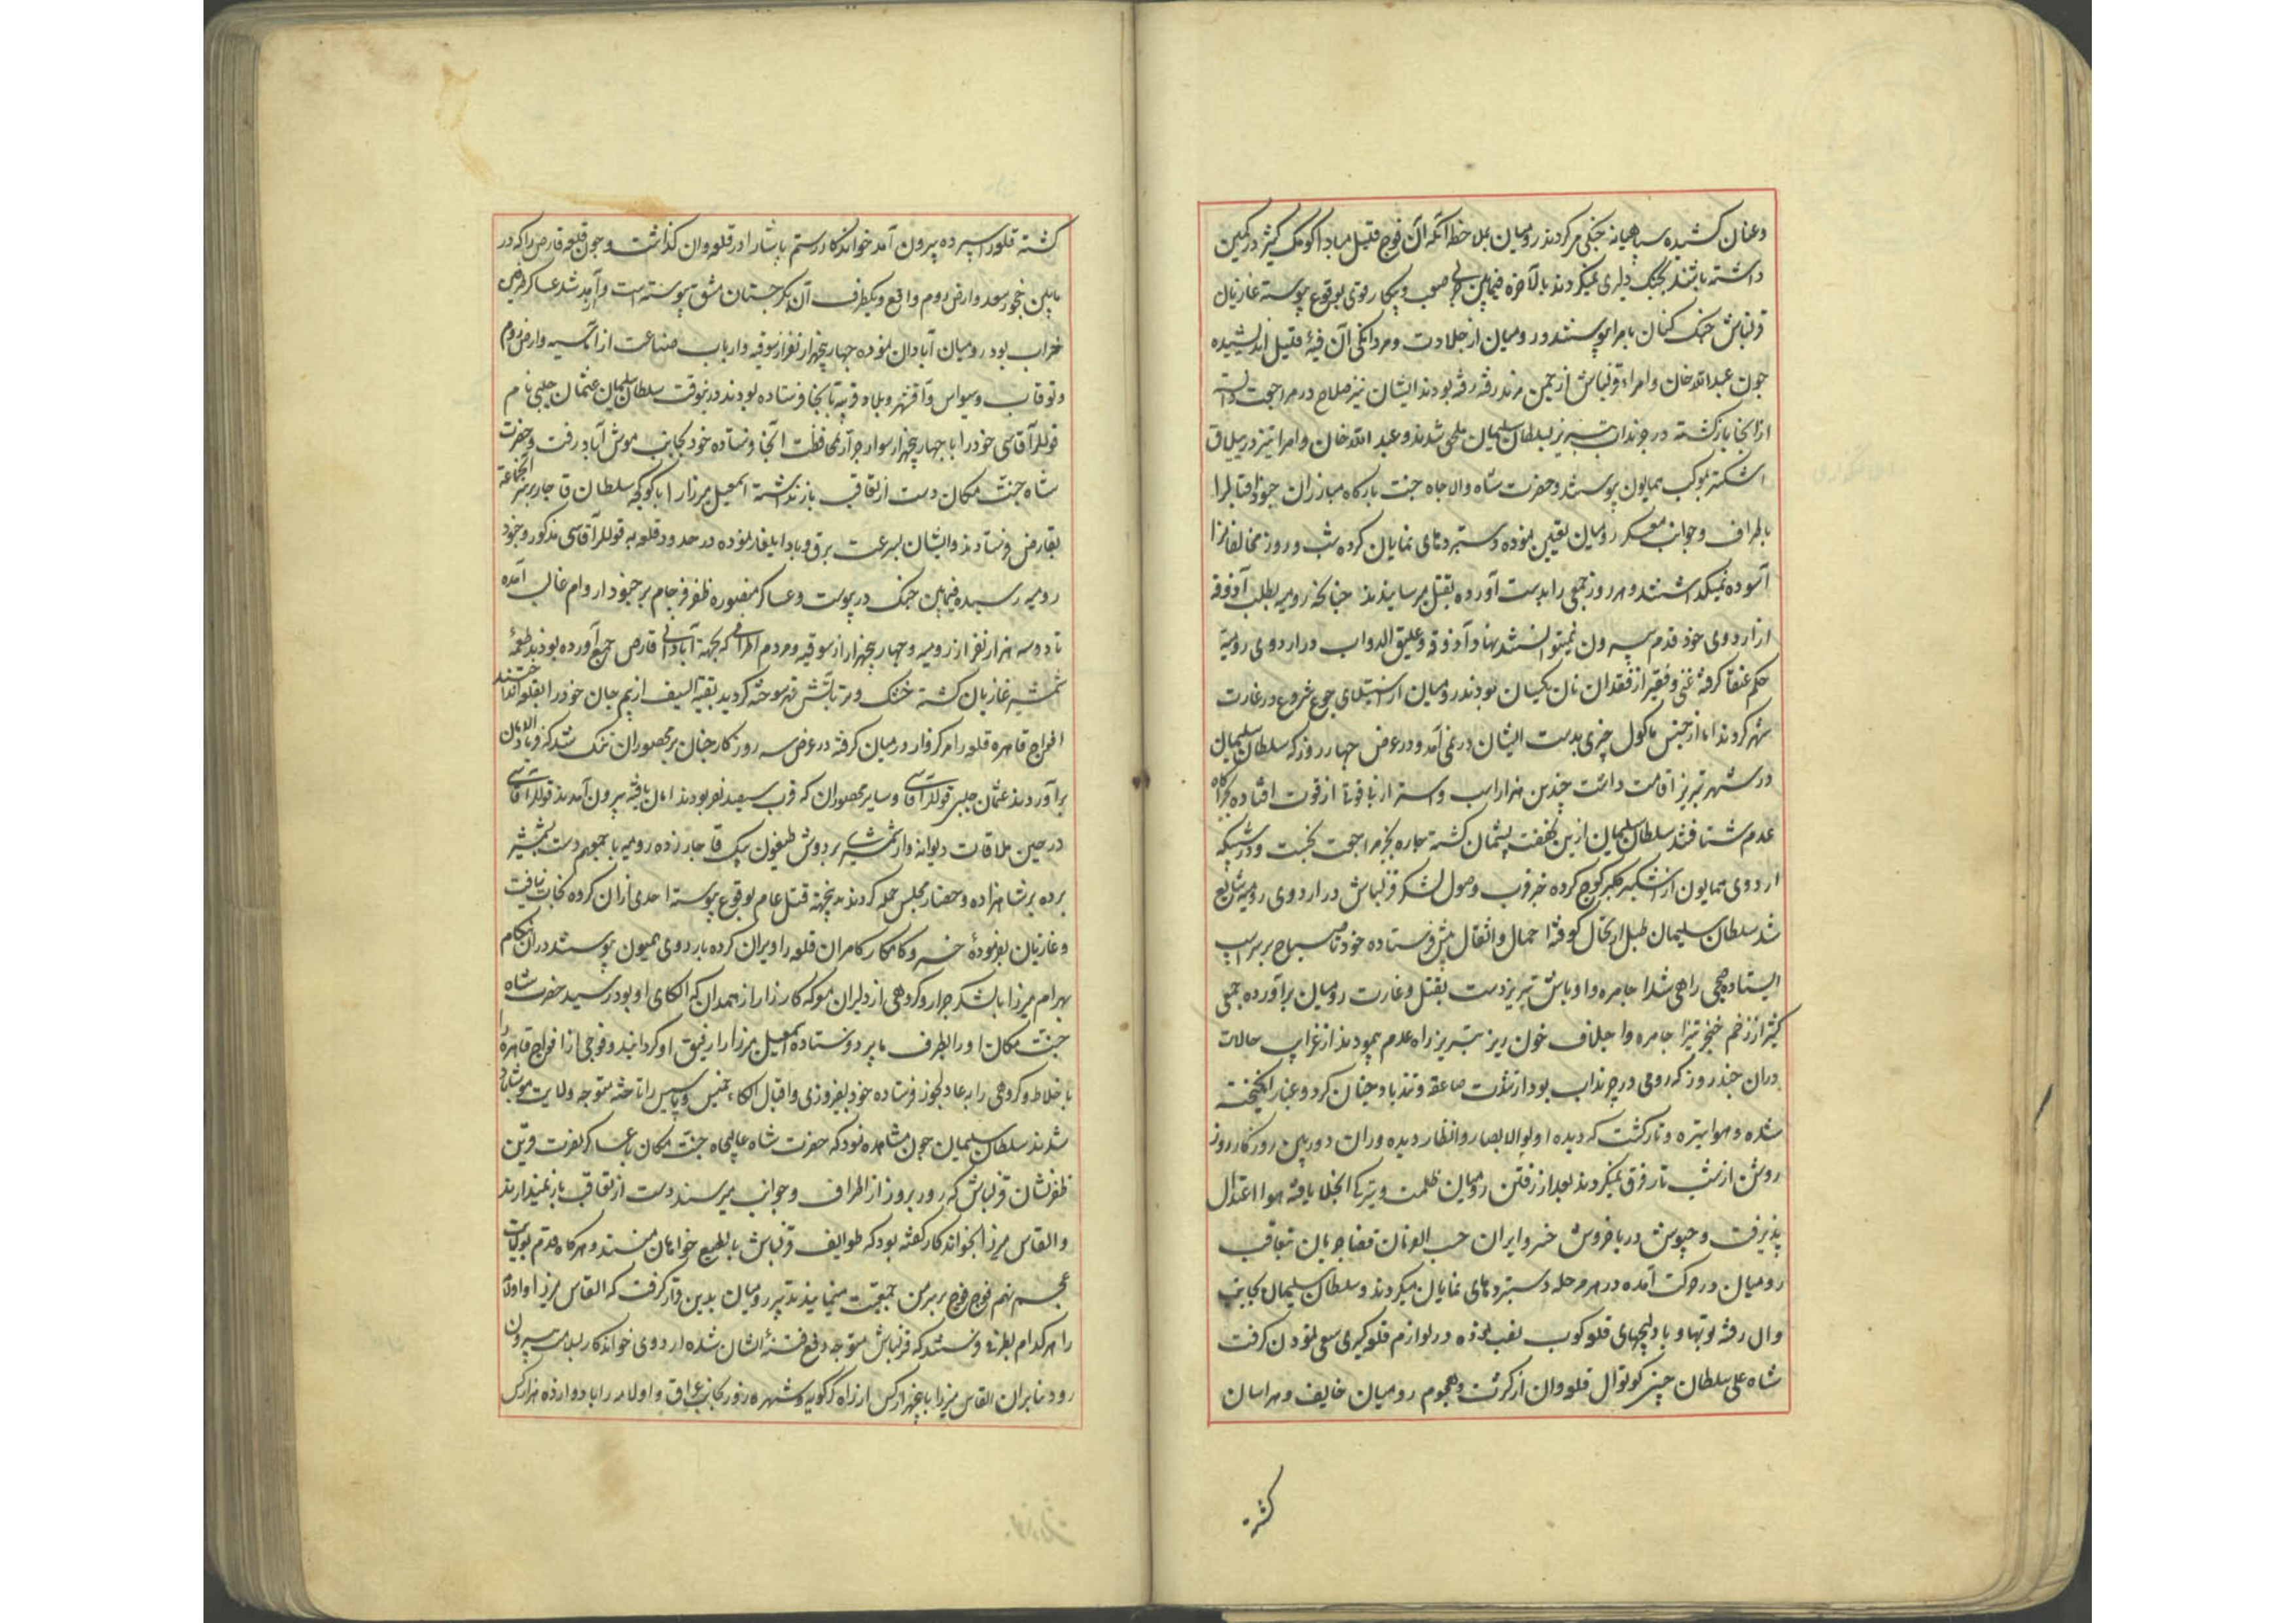 وعنان کشیده سپاهیانه جنکی میکردند رومیان بملاحظه آنکه آن فوج قلیل مبادا کومک کثیر در کمین
داشته باشند بجنک دلیری نمیکردند بالآخره فیمابین حربی صعب و پیکار قوی بوقوع پیوسته غازیان
قزلباش جنک کنان بامرا پیوستند و رومیان از جلادت و مردانکی آن فئهٔ قلیل اندیشیده
چون عبدالله خان و امراء قزلباش از چمن مرند رفته بودند ایشان نیز صلاح در مراجعت دانسته
از انجا بازکشته در چرنداب تبریز بسلطان سلیمان ملحق شدند و عبد الله خان و امرا نیز در ییلاق
اشکنبر بموکب همایون پیوستند و حضرت شاه والاجاه جنت بارکاه مبارزان جنود اقبال را
باطراف و جوانب معسکر رومیان تعیین نموده دستبردهای نمایان کرده شب و روز مخالفانرا
آسوده نمیکذاشتند و هر روز جمعی را بدست آورده بقتل میرسانیدند چنانکه رومیه بطلب آذوقه
از اردوی خود قدم بیرون نمیتوانستند نهاد و آذوقه و علیق الدواب در اردوی رومیه
حکم عنقا کرفته غنی و فقیر از فقدان نان یکسان بودند رومیان از استیلای جوع شروع در غارت
شهر کردند اما از جنس ماکول چیزی بدست ایشان در نمی آمد و در عرض چهار روز که سلطان سلیمان
در شهر تبریز اقامت داشت چندین هزار اسب و استر از نایافت از قوت افتاده بچراکاه
عدم شتافتند سلطان سلیمان ازین نهضت پشیمان کشته چاره بجز مراجعت نجست و در شبی که
اردوی همایون از اشکنبر کوچ کرده خبر قرب وصول لشکر قزلباش در اردوی رومیه شایع
شد سلطان سلیمان طبل ارتحال کوفته احمال و اثقال پیش فرستاده خود تا صباح بر سر اسب
ایستاده صبحی راهی شد اجامره و اوباش تبریز دست بقتل و غارت رومیان برآورده جمعی
کثیر از زخم خنجر تیز اجامره و اجلاف خون ریز تبریز راه عدم پیمودند از غرایب حالات
دران چند روز که رومی در چرنداب بود از شدت صاعقه و تند باد چنان کرد و غبار انکیخته
شده و هوا تیره و تار کشت که دیده اولوالابصار و انظار دیده وران دوربین روزکار روز
روشن از شب تار فرق نمیکردند بعد از رفتن رومیان ظلمت و تیرکی انجلا یافته هوا اعتدال
پذیرفت و جیوش دریا خروش خسرو ایران حسب الفرمان قضا جریان بتعاقب
رومیان در حرکت آمده در هر مرحله دستبردهای نمایان میکردند و سلطان سلیمان بجانب
وان رفته توبها و بادلیجهای قلعه کوب نصب نموده در لوازم قلعه کیری سعی نمودن کرفت
شاه علی سلطان چپنی کوتوال قلعه وان از کثرت و هجوم رومیان خایف و هراسان
کشته
کشته قلعه را سپرده بیرون آمد خواندکار رستم پاشا را در قلعه وان کذاشت و چون قلعه قارص را که در
مابین خچور سعد و ارض روم واقع و یکطرف آن بکرجستان مشق پیوسته است و آمد شد عساکر طرفین
خراب بود رومیان آبادان نموده چهار پنجهزار نفر از سوقیه و ارباب صناعت از آماسیه و ارض روم
و توقات و سیواس و آقشهر و بلاد قریبه تا بانجا فرستاده بودند درینوقت سلطان سلیمان عثمان چلبی نام
قوللر آقاسی خود را با چهار پنجهزار سوار جرار بمحافظت آنجا فرستاده خود بجانب موش آباد رفت و حضرت
شاه جنت مکان دست از تعاقب بازنداشته اسمعیل میرزا را با کوکجه سلطان قاجار بر سر انجماعة
بقارص فرستادند و ایشان بسرعت برق و باد ایلغار نموده در حدود قلعه به قوللر آقاسی مذکور و جنود
رومیه رسیده فیمابین جنک در پیوست و عساکر منصوره ظفر فرجام بر جنود اروام غالب آمده
تا دو سه هزار نفر از رومیه و چهار پنجهزار از سوقیه و مردم اطراف که بجهة آبادانی قارص جمع آورده بودند طعمهٔ
شمشیر غازیان کشته خشک و تر باتش قهر سوخته کردید بقیة السیف از بیم جان خود را بقلعه انداختند
افواج قاهره قلعه را مرکزوار در میان کرفته در عرض سه روز کار چنان بر محصوران تنک شد که فریاد الامان
برآوردند عثمان چلبی قوللر آقاسی و سایر محصوران که قرب سیصد نفر بودند امان یافته بیرون آمدند قوللر آقاسی
در حین ملاقات دیوانه وار شمشیر بر دوش طیفون بیک قاجار زده رومیه با جمعهم دست بشمشیر
برده بر شاهزاده و حضار مجلس حمله کردند بدینجهة قتل عام بوقوع پیوسته احدی ازان کرده نجات نیافت
و غازیان بفرمودهٔ خسرو کامکار کامران قلعه را ویران کرده باردوی همیون پیوستند دران هنکام
بهرام میرزا با لشکر جرار و کروهی از دلیران معرکه کارزار از همدان که الکای او بود رسید حضرت شاه
جنت مکان او را بطرف مامیر و فرستاده اسمعیل میرزا را رفیق او کردانید و فوجی از افواج قاهره را
باخلاط و کروهی را به عادلجوز فرستاده خود بفیروزی و اقبال الکاء خنس و پاسین را تاخته متوجه ولایت موش آباد
شدند سلطان سلیمان چون مشاهده نمود که حضرت شاه عالیجاه جنت مکان با عساکر نصرت قرین
ظفرنشان قزلباش که روز بروز از اطراف و جوانب میرسند دست از تعاقب باز نمیدارند
و القاس میرزا بخواندکار کفته بود که طوایف قزلباش بالطبع خواهان منند و هرکاه قدم بولایت
عجم نهم فوج فوج بر سر من جمعیت مینمایند تدبیر رومیان بدین قرار کرفت که القاس میرزا و اولامه
را هر کدام بطرفی فرستند که قزلباش متوجه دفع فتنهٔ ایشان شده اردوی خواندکار بسلامت بیرون
رود بنا بران القاس میرزا با پنجهزار کس از راه کرکویه و شهره زور بجانب عراق و اولامه را با دوازده هزار کس